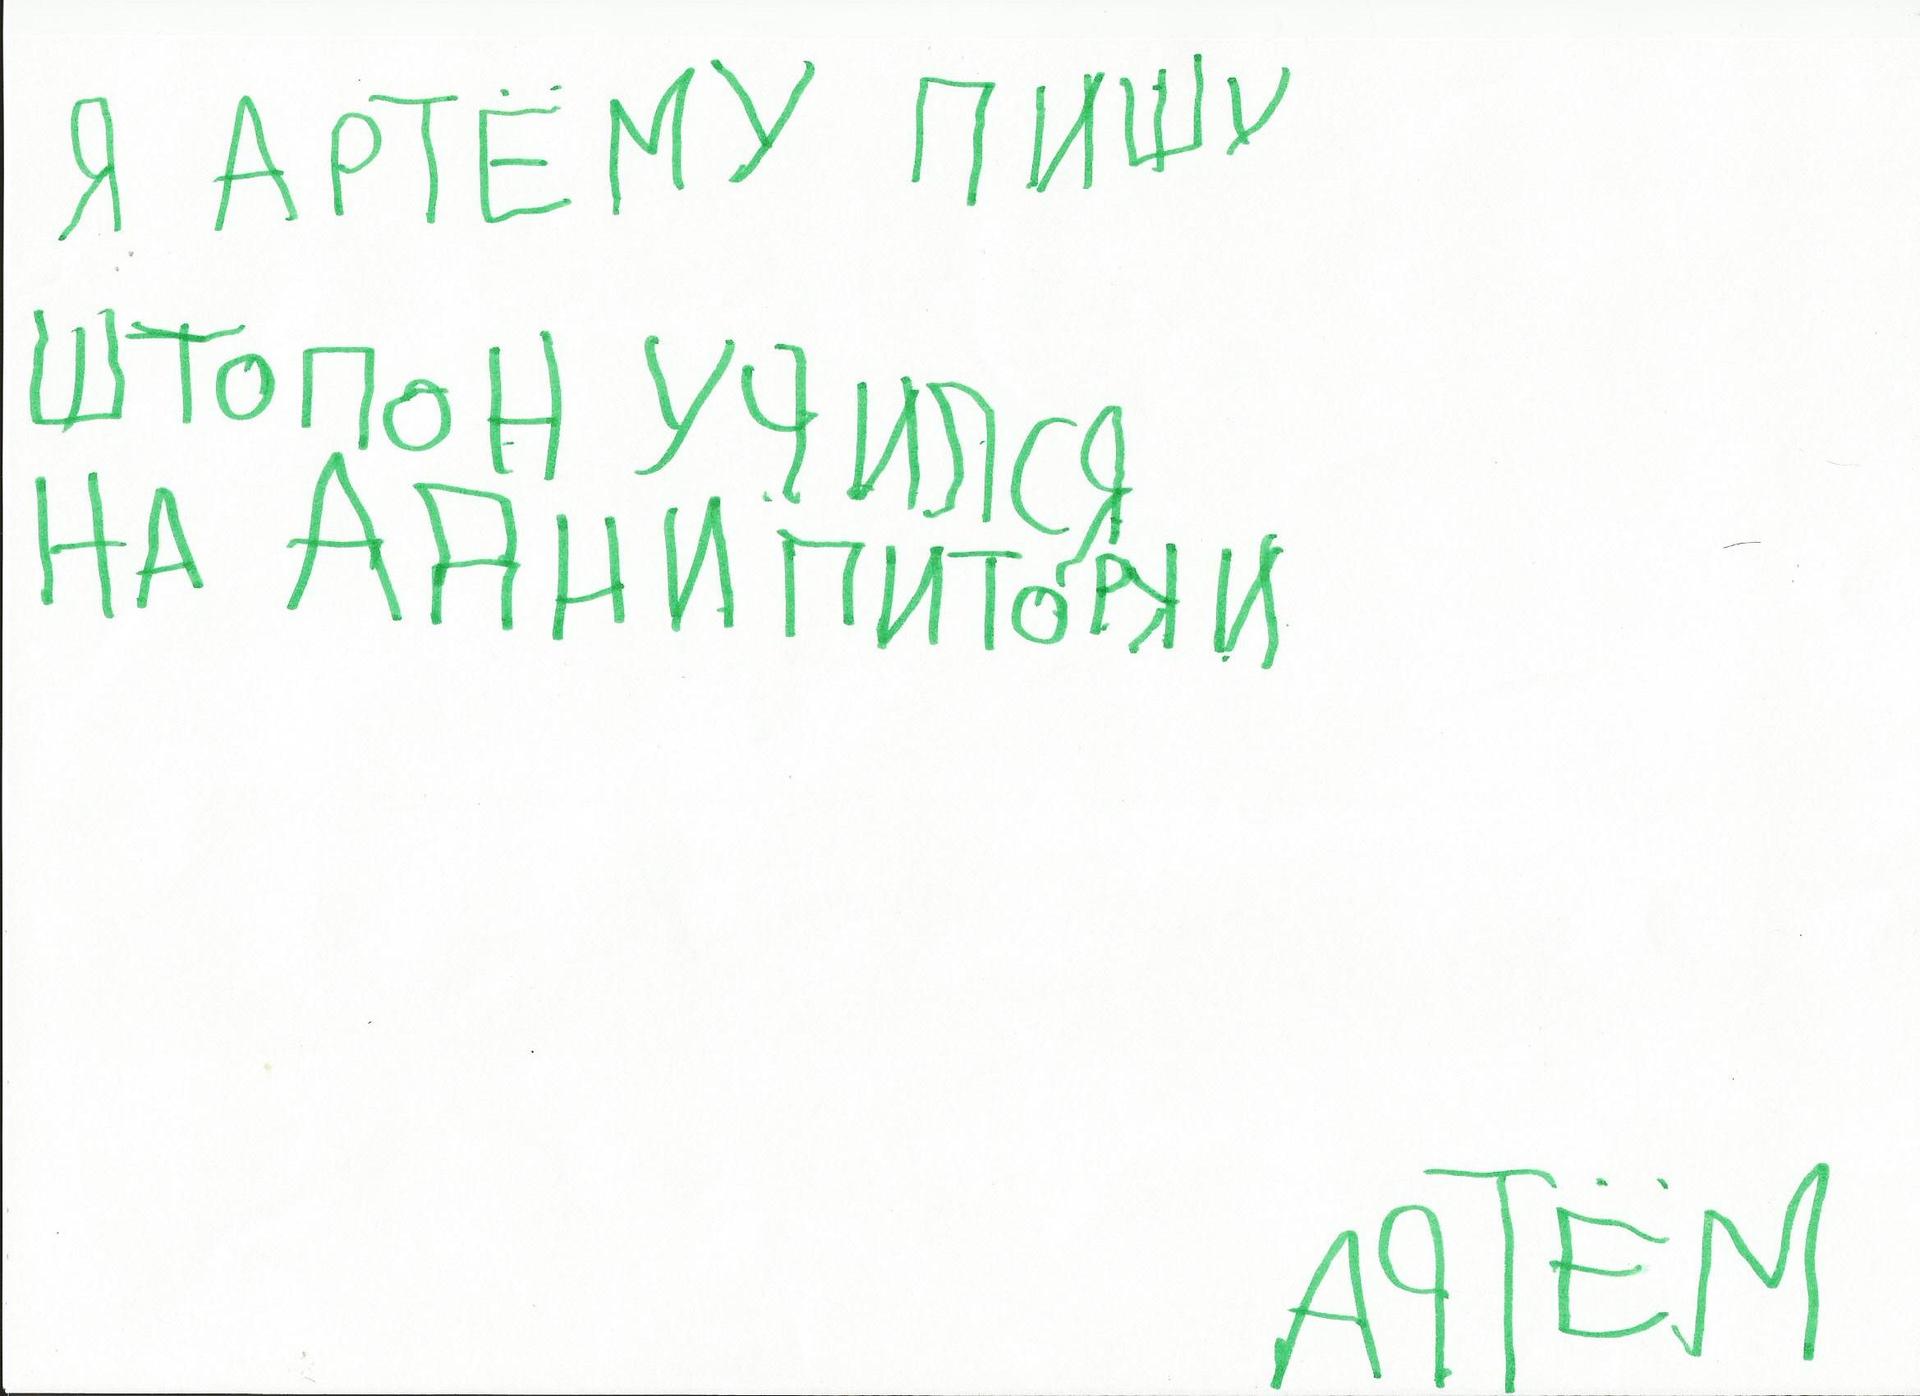 Я АРТЁМУ ПИШУ
ШТОПОН УЧИЛСЯ
НА АПНИПИТОРЯИ
АРТЁМ